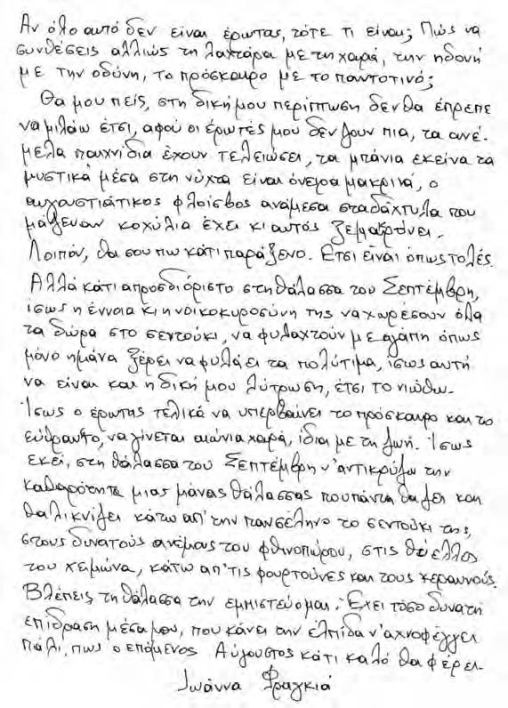 Αν όλο αυτό δεν είναι έρωτας, τότε τι είναι; Πώς να
συνθέσεις αλλιώς τη λαχτάρα με τη χαρά, την ηδονή
με την οδύνη, το πρόσκαιρο με το παντοτινό;
Θα μου πείς, στη δική μου περίπτωση δεν θα έπρεπε
να μιλάω έτσι, αφού οι έρωτές μου δεν ζουν πια, τα ανέ-
μελα παιχνίδια έχουν τελειώσει, τα μπάνια εκείνα τα
μυστικά μέσα στη νύχτα είναι όνειρα μακρινά, ο
αυγουστιάτικος φλοίσβος ανάμεσα στα δάχτυλα που
μάζευαν κοχύλια έχει κι αυτός ξεμακρύνει.
Λοιπόν, θα σου πω κάτι παράξενο. Έτσι είναι όπως το λές.
Αλλά κάτι απροσδιόριστο στη θάλασσα του Σεπτέμβρη,
ίσως η έννοια κι η νοικοκυροσύνη της να χωρέσουν όλα
τα δώρα στο σεντούκι, να φυλαχτούν με αγάπη όπως
μόνο η μάνα ξέρει να φυλάει τα πολύτιμα, ίσως αυτή
να είναι και η δική μου λύτρωση, έτσι το νιώθω.
Ίσως ο έρωτας τελικά να υπερβαίνει το πρόσκαιρο και το
εύθραυστο, να γίνεται αιώνια χαρά, ίδια με τη ζωή. Ίσως
εκεί, στη θάλασσα του Σεπτέμβρη ν' αντικρύζω την
καθαρότητα μιας μάνας θάλασσας που πάντα θα ζει και
θα λικνίζει κάτω απ' την πανσέληνο το σεντούκι της,
στους δυνατούς ανέμους του φθινοπώρου, στις θύελλες
του χειμώνα, κάτω απ' τις φουρτούνες και τους κεραυνούς.
Βλέπεις τη θάλασσα την εμπιστεύομαι. Έχει τόσο δυνατή
επίδραση μέσα μου, που κάνει την ελπίδα ν' αχνοφέγγει
πάλι, πως ο επόμενος Αύγουστος κάτι καλό θα φέρει.
Ιωάννα Φραγκιά